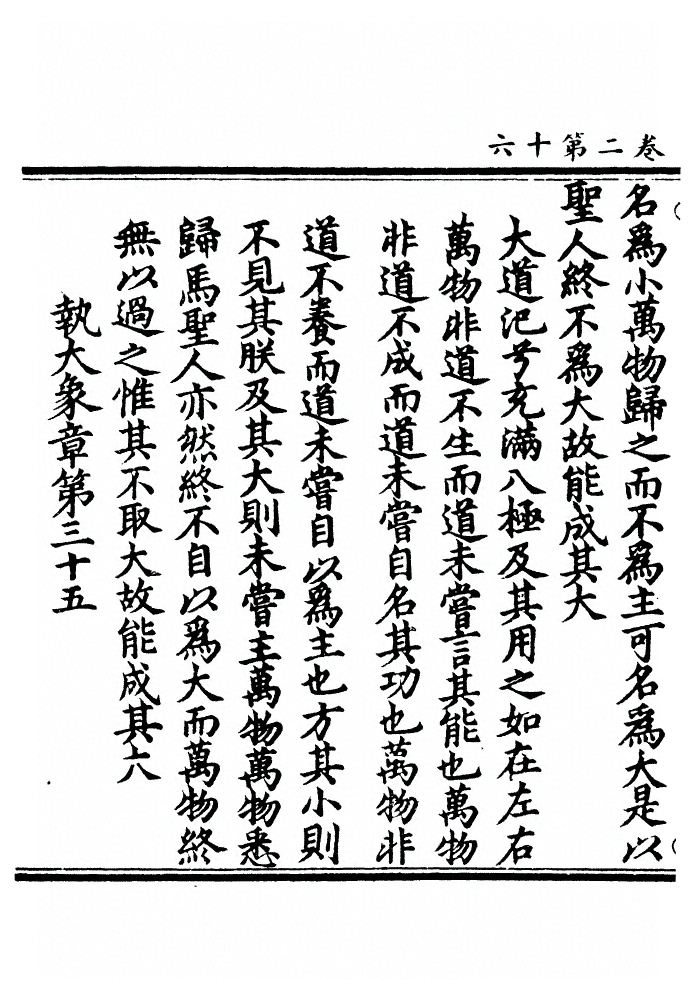 卷二第十六
名爲小萬物歸之而不爲主可名爲大是以
聖人終不爲大故能成其大
大道汜兮充滿八極及其用之如在左右
萬物非道不生而道未嘗言其能也萬物
非道不成而道未嘗自名其功也萬物非
道不養而道未嘗自以爲主也方其小則
不見其朕及其大則未嘗主萬物萬物悉
歸焉聖人亦然終不自以爲大而萬物終
無以過之惟其不取大故能成其六
執大象章第三十五